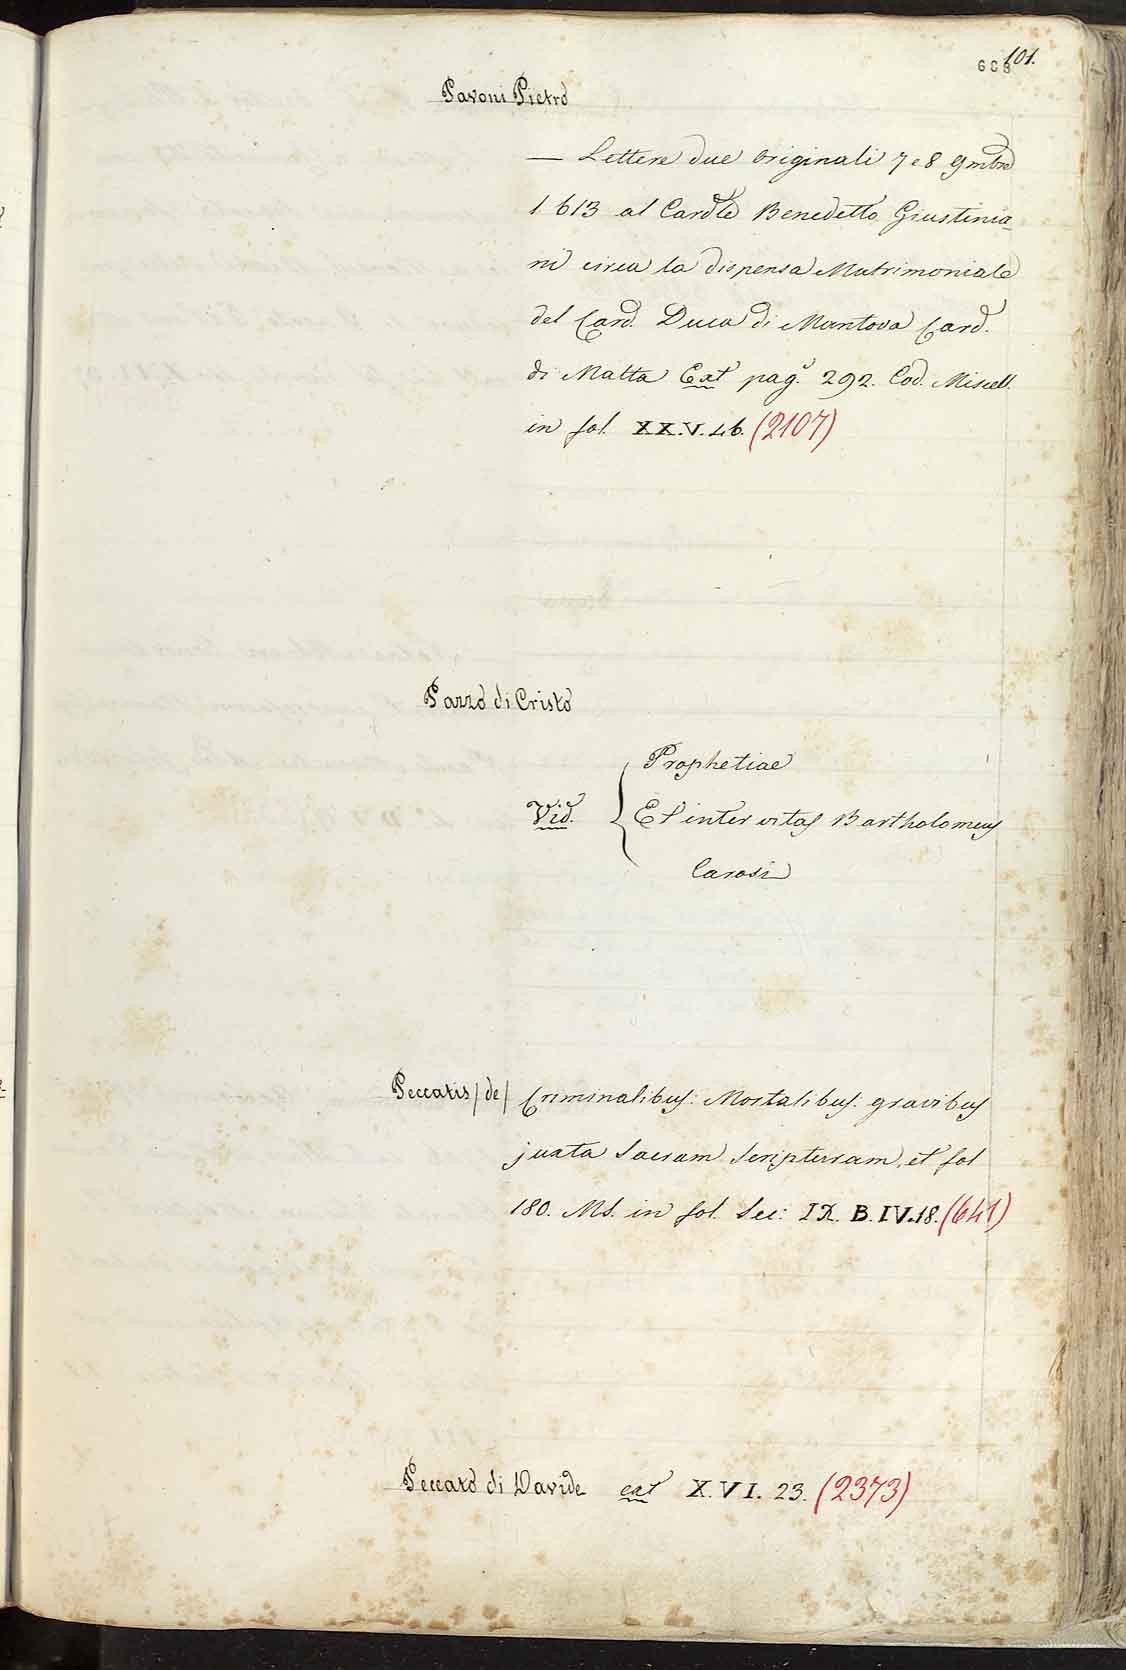 101.
603
Pavoni Pietro
— Lettere due originali 7 e 8 9mbre
1613 al Cardle Benedetto Giustinia-
ni circa la dispensa Matrimoniale
del Card. Duca di Mantova Card.
di Matta Ext pag. 292. Cod. Miscell.
in fol. XX.V.46. (2107)
Pazzo di Cristo
Prophetiae
Vid. { Et inter vitas Bartholomeus
Carosi
Peccatis /de/ Criminalibus: Mortalibus: gravibus
juxta Sacram Scripturam, et fol
180. Ms. in fol. Sec: IX. B. IV.18. (641)
Peccato di Davide ext X.VI. 23. (2373)